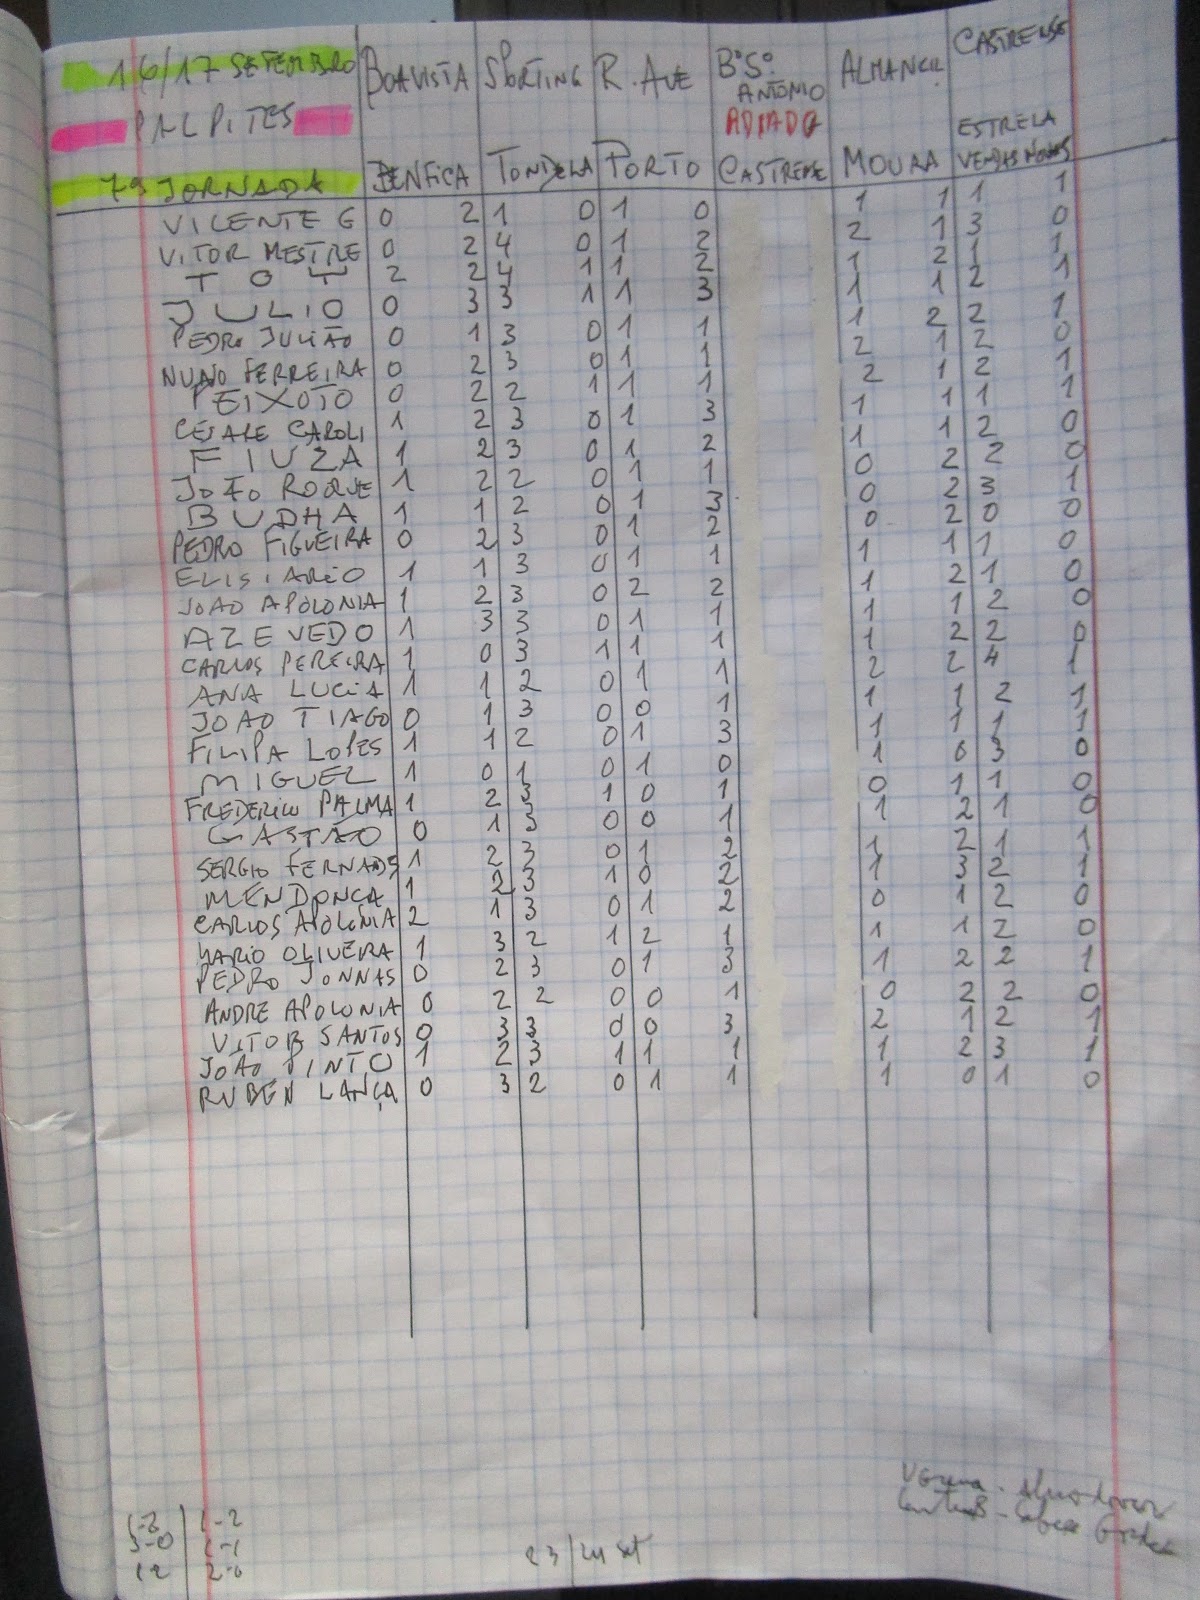 16/17 SETEMBRO BOAVISTA SPORTING R. AVE Bº Sº ANTONIO ALMANCIL CASTRENSE
PALPITES ADIADO
7ª JORNADA BENFICA TONDELA PORTO CASTRENSE MOURA ESTRELA VENDAS NOVAS
VILENTE G 0 2 1 0 1 0 1 1 1 1
VITOR MESTRE 0 2 4 0 1 2 2 1 3 0
TOY 2 2 4 1 1 2 1 2 1 1
JULIO 0 3 3 1 1 3 1 1 2 1
PEDRO JULIÃO 0 1 3 0 1 1 1 2 2 1
NUNO FERREIRA 0 2 3 0 1 1 2 1 2 0
PEIXOTO 0 2 2 1 1 1 2 1 2 1
CESARE CAROLI 1 2 3 0 1 3 1 1 1 1
FIUZA 1 2 3 0 1 2 1 1 2 0
JOÃO ROQUE 1 2 2 0 1 1 0 2 2 0
BUDHA 1 1 2 0 1 3 0 2 3 1
PEDRO FIGUEIRA 0 2 3 0 1 2 0 2 0 0
ELISIARIO 1 1 3 0 1 1 1 1 1 0
JOÃO APOLONIA 1 2 3 0 2 2 1 2 1 0
AZEVEDO 1 3 3 0 1 1 1 1 2 0
CARLOS PEREIRA 1 0 3 1 1 1 1 2 2 0
ANA LUCIA 1 1 2 0 1 1 2 2 4 1
JOÃO TIAGO 0 1 3 0 0 1 1 1 2 1
FILIPA LOPES 1 1 2 0 1 3 1 1 1 1
MIGUEL 1 0 1 0 1 0 1 0 3 0
FREDERICO PALMA 1 2 3 1 0 1 0 1 1 0
GASTÃO 0 1 3 0 0 1 1 2 1 0
SERGIO FERNADS 1 2 3 0 1 2 1 2 1 1
MENDONCA 1 2 3 1 0 2 1 3 2 1
CARLOS APOLONIA 2 1 3 0 1 2 0 1 2 0
MARIO OLIVEIRA 1 3 2 1 2 1 1 1 2 0
PEDRO JONNAS 0 2 3 0 1 3 1 2 2 1
ANDRE APOLONIA 0 2 2 0 0 1 0 2 2 0
VITOR SANTOS 0 3 3 0 0 3 2 1 2 1
JOÃO PINTO 1 2 3 1 1 1 1 2 3 1
RUBEN LANÇA 0 3 2 0 1 1 1 0 1 0
1-2
3-0 1-1
12 2-0
23/24 set